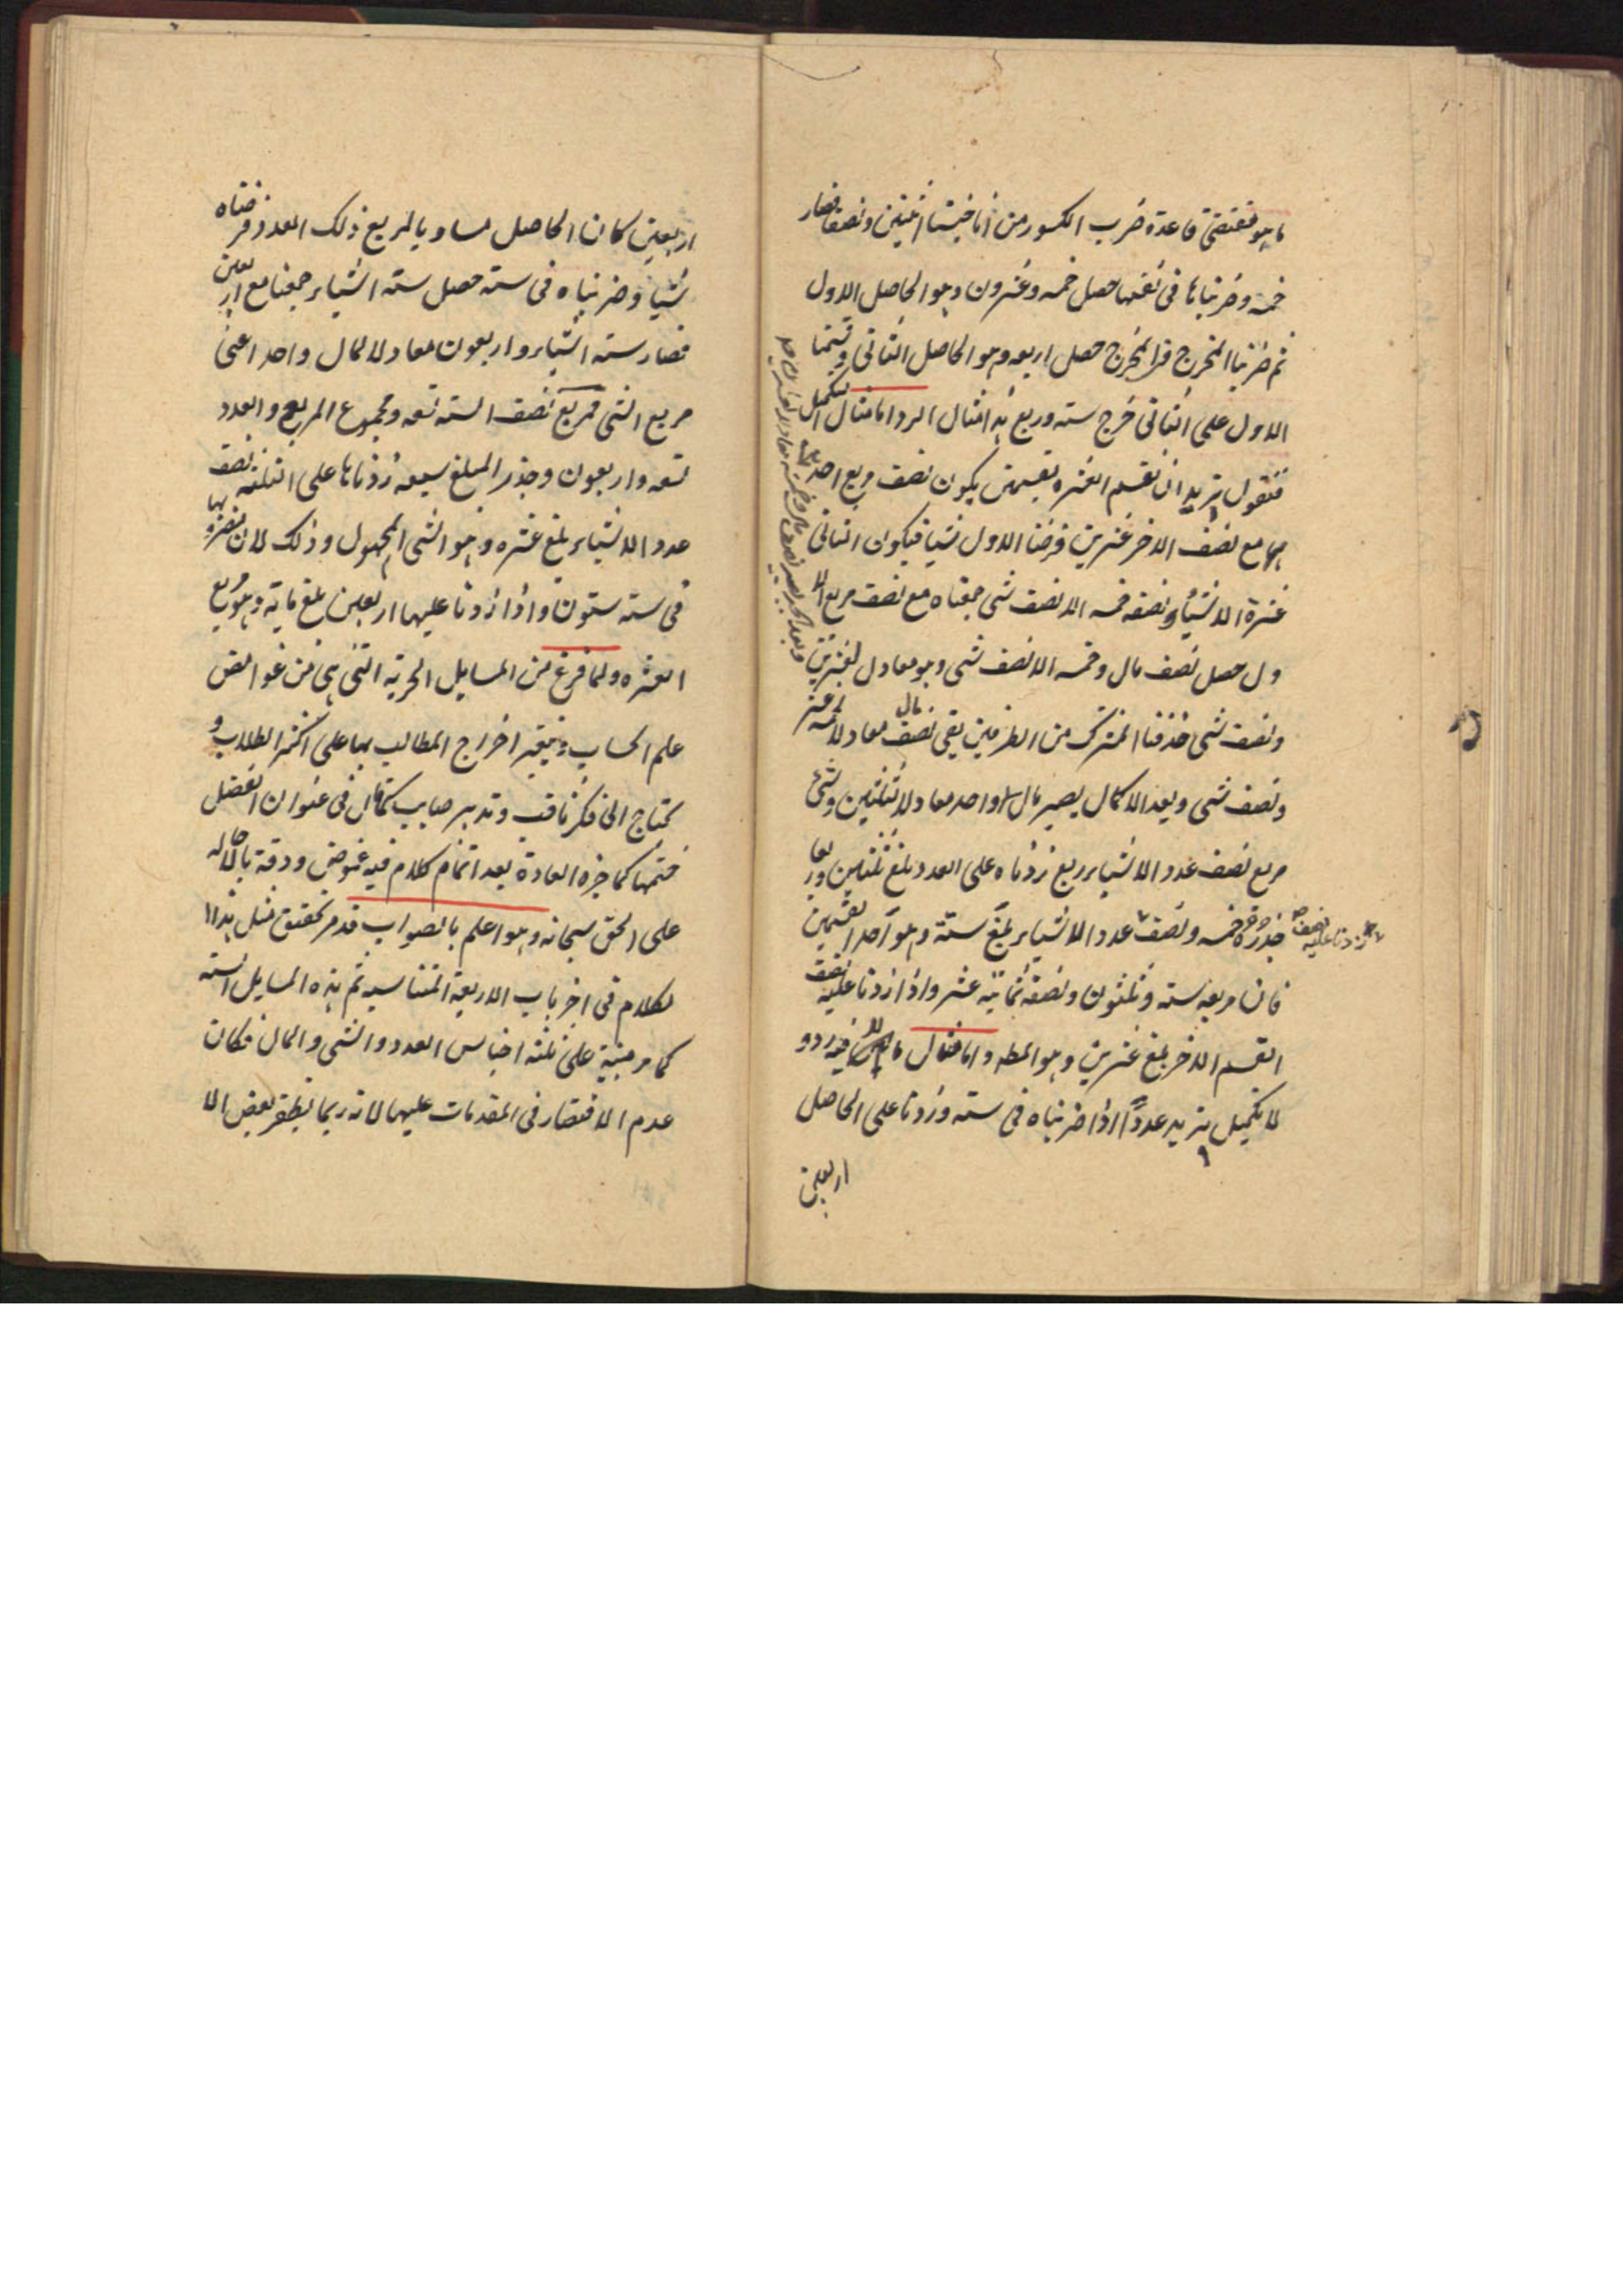 ما هو مقتضى قاعدة ضرب الكسور من انا خيسنا اثنين ونصفا فصار
خمسة وضربناها فى نفسها حصل خمسه وعشرون وهو الحاصل الاول
ثم ضربنا المخرج فى المخرج حصل اربعه وهو الحاصل الثانى وقسمنا
الاول على الثانى خرج سته وربع هذا مثال الرد اما مثال التكميل
فنقول نريد ان نقسم العشره بقسمين يكون نصف مربع احدهما
مع نصف الاخر عشرين فرضنا الاول شيا فيكون الثانى
عشرة الا شيا ونصفه خمسه الا نصف شى جمعناه مع نصف مربع الا
ول حصل نصف مال وخمسه الا نصف شى وهو معادل لعشرين
ونصف شى حذفنا المشترك من الطرفين بقى نصف مال معادلا لخمسة عشر
ونصف شى وبعد الاكمال يصير مال واحد معادلا لثلثين وشى
مربع نصف عدد الاشياء ربع زدناه على العدد بلغ ثلثين وربعا
جذره خمسه ونصف عدد الاشياء بلغ ستة وهو احد القسمين
زدنا عليه نصف
فان مربعه سته وثلثون ونصفه ثمانية عشر واذا زدنا عليه نصف
القسم الاخر بلغ عشرين وهو المط واما مثال ما لا فيه رد و
لا تكميل نريد عددا اذا ضربناه فى سته وزدنا على الحاصل
اربعين
اربعين كان الحاصل مساويا لمربع ذلك العدد فرضناه
شيا وضربناه فى سته حصل ستة اشياء جمعنا مع اربعين
فصار سته اشياء واربعون معادلا لمال واحد اعنى
مربع الشى فمربع نصف السته تسعه ومجموع المربع والعدد
تسعه واربعون وجذر المبلغ سبعه زدناها على الثلثه نصف
عدد الاشياء بلغ عشره وهو الشى المجهول وذلك لان بضربها
فى سته ستون واذا زدنا عليها اربعين بلغ مايه وهو مربع
العشره ولما فرغ من المسايل الجبرية التى هى من غوامض
علم الحساب ويتعسر اخراج المطالب بها على اكثر الطلاب و
يحتاج الى فكر ثاقب وتدبر صايب كما قال فى عنوان الفصل
ختمها كما جره العادة بعد اتمام كلام فيه غموض ودقة بالاحاله
على الحق سبحانه وهو اعلم بالصواب قد مر تحقيق مثل هذا ا
لكلام فى اخر باب الاربعة المتناسبه ثم هذه المسايل السته
كما مر مبنية على ثلثه اجناس العدد والشى والمال فكان
عدم الاقتصار فى المقدمات عليها لانه ربما يظفر بعض الا